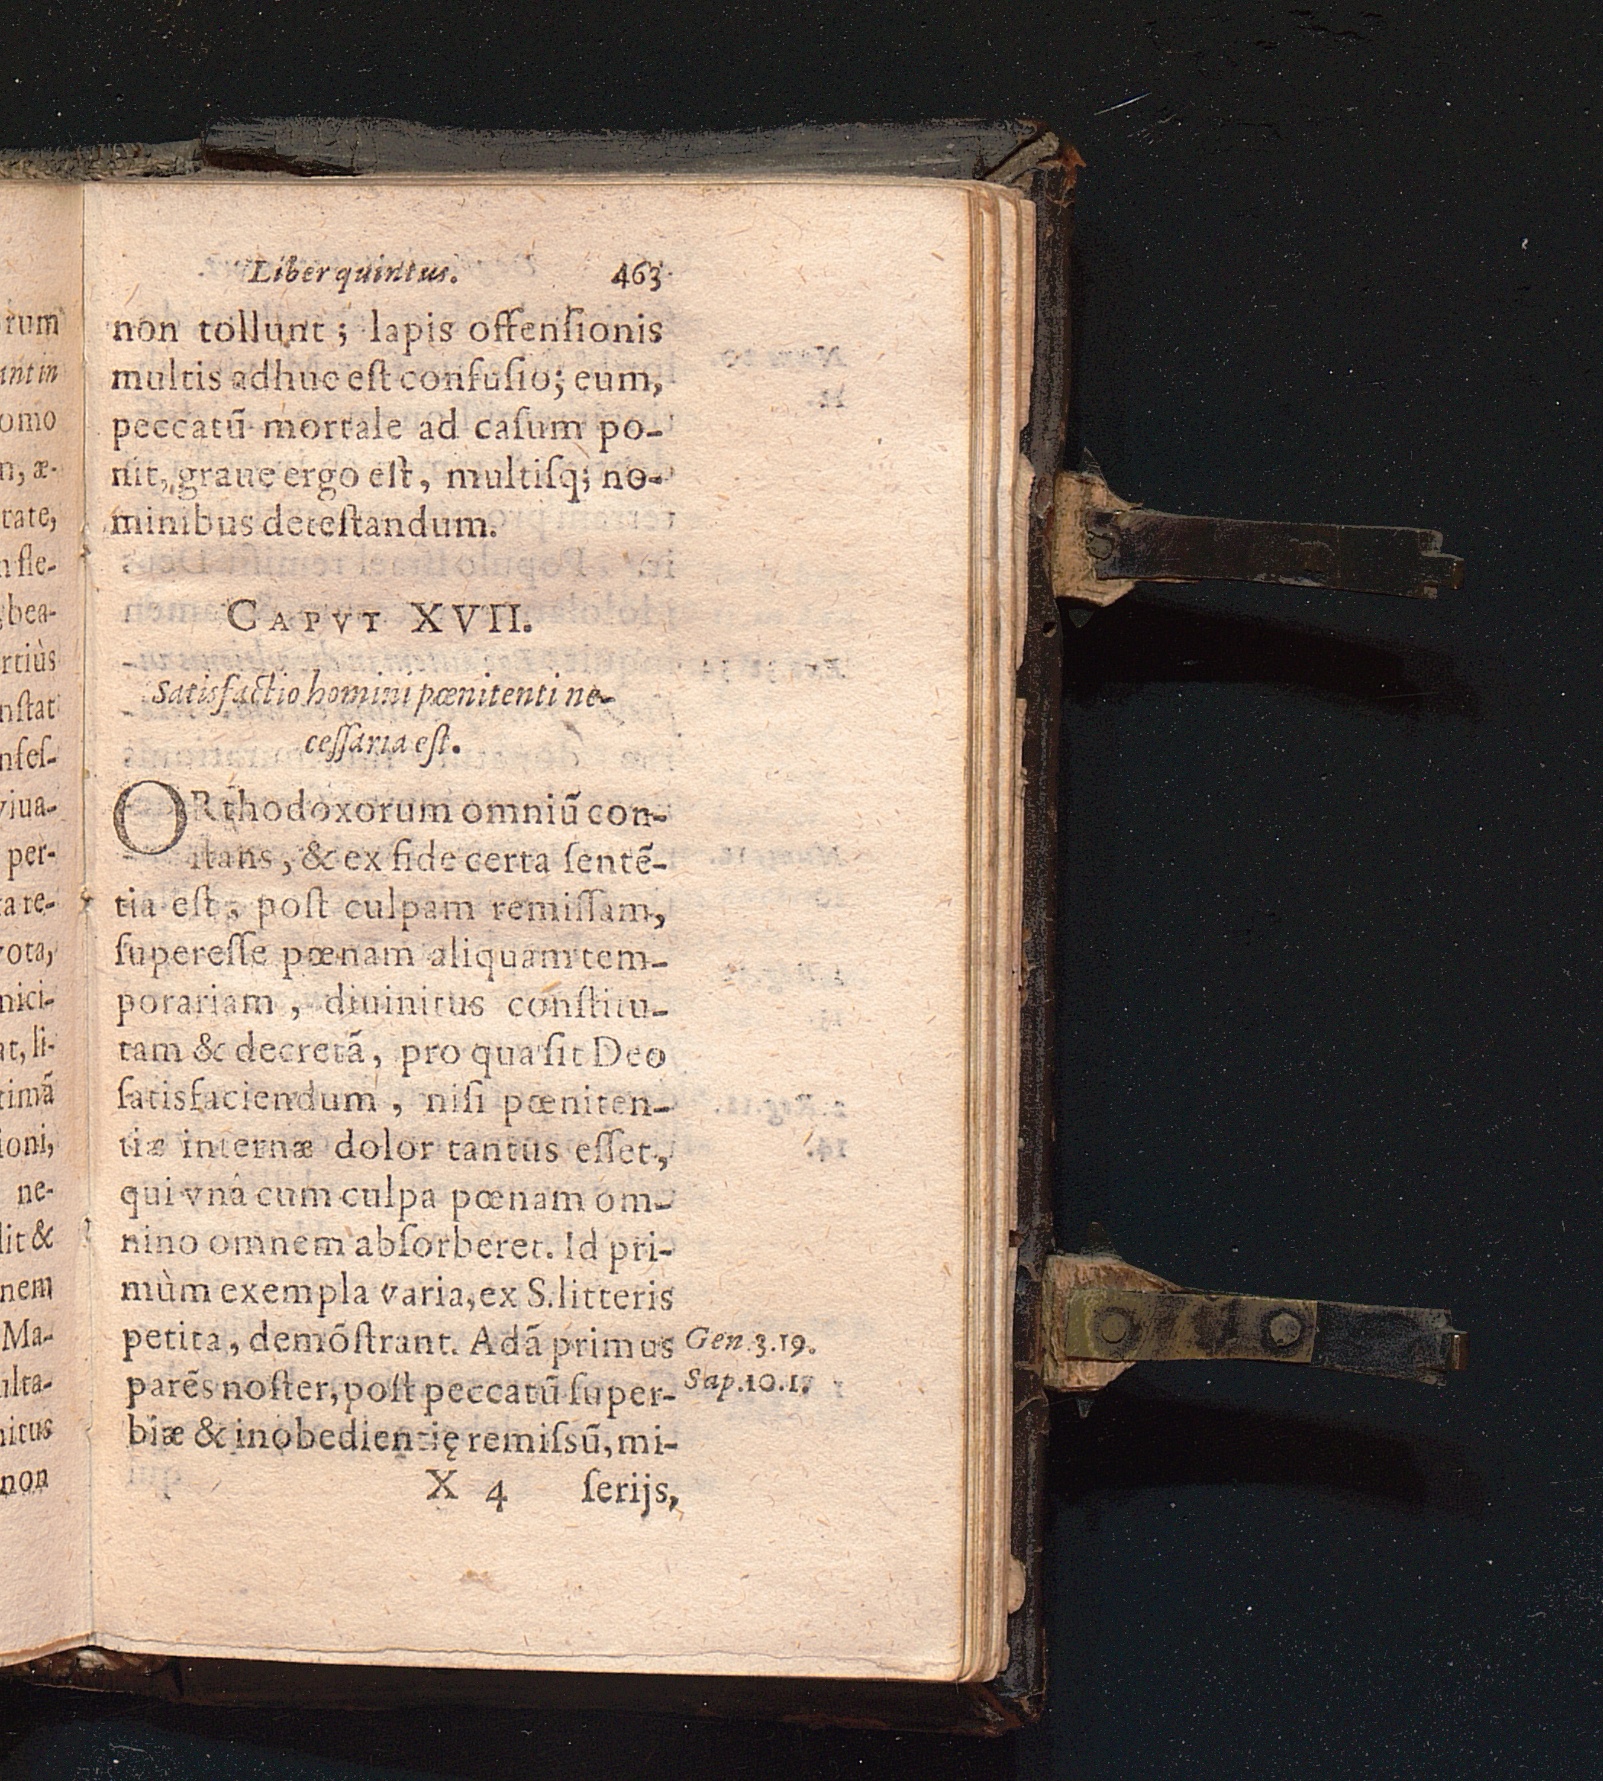 Liber quintus. 463
non tollunt; lapis offenſionis
multis adhuc eſt confuſio; eum,
peccatũ mortale ad caſum po-
nit, graue ergo eſt, multiſq; no-
minibus deteſtandum.
CAPVT XVII.
Satisfactio homini pœnitenti ne-
ceſſaria eſt.
ORthodoxorum omniũ con-
ſtans, & ex fide certa ſentẽ-
tia eſt, poſt culpam remiſſam,
ſupereſſe pœnam aliquam tem-
porariam, diuinitus conſtitu-
tam & decretã, pro qua ſit Deo
ſatisfaciendum, niſi pœniten-
tiæ internæ dolor tantus eſſet,
qui vnâ cum culpa pœnam om-
nino omnem abſorberet. Id pri-
mùm exempla varia, ex S. litteris
petita, demõſtrant. Adã primus
parẽs noſter, poſt peccatũ ſuper-
biæ & inobedientię remiſsũ, mi-
X 4 ſerijs,
Gen. 3. 19.
Sap. 10. 1.
rum
ant in
omo
n, æ-
rate,
n fle-
bea-
rtiùs
nſtat
nfeſ-
viua-
per-
ta re-
vota,
nici-
at, li-
timã
ioni,
ne-
lit &
nem
Ma-
ulta-
nitus
non